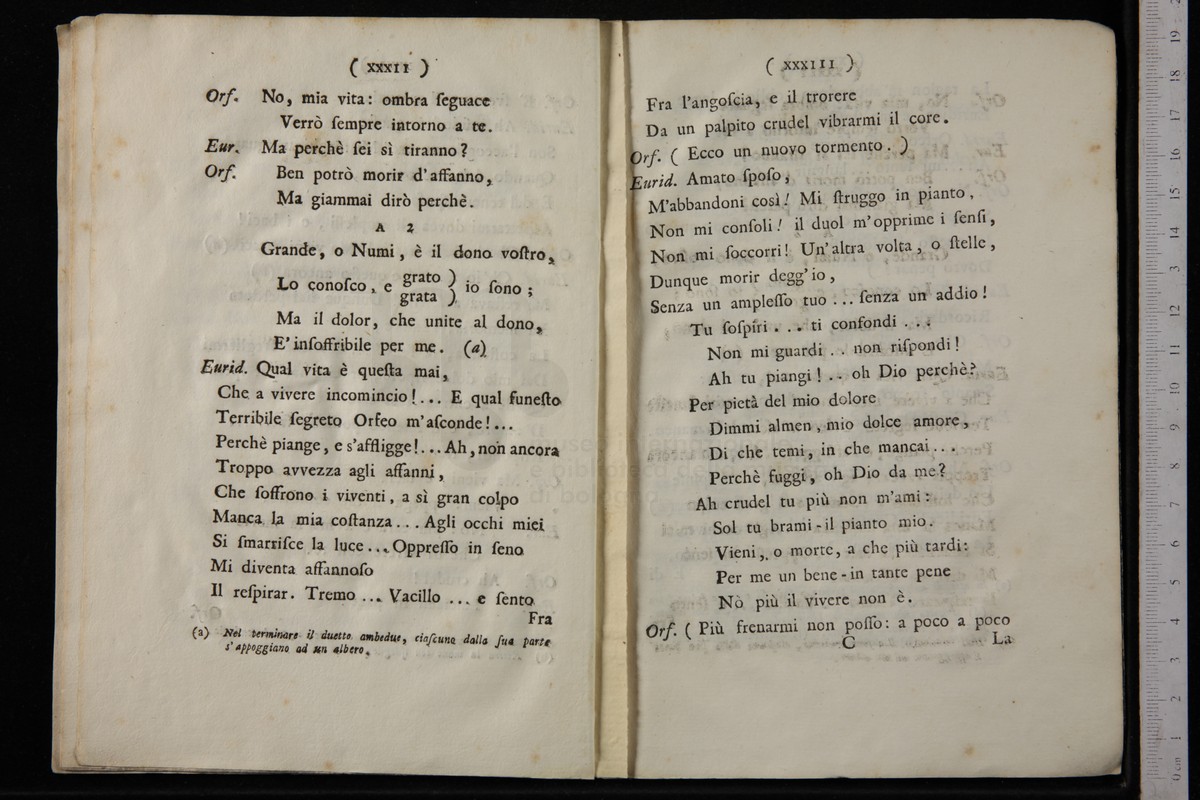 ( XXXII )
Orſ. No, mia vita: ombra ſeguace
Verrò ſempre intorno a te.
Eur. Ma perchè ſei sì tiranno?
Orf. Ben potrò morir d'affanno,
Ma giammai dirò perchè.
A 2
Grande, o Numi, è il dono voſtro,
Lo conoſco, e grato ) io ſono;
grata )
Ma il dolor, che unite al dono,
E' inſoffribile per me. (a)
Eurid. Qual vita è queſta mai,
Che a vivere incomincio!... E qual funeſto
Terribile ſegreto Orfeo m'aſconde!...
Perchè piange, e s'affligge!... Ah, non ancora
Troppo avvezza agli affanni,
Che ſoffrono i viventi, a sì gran colpo
Manca la mia coſtanza... Agli occhi miei
Si ſmarriſce la luce... Oppreſſo in ſeno
Mi diventa affannoſo
Il reſpirar. Tremo ... Vacillo ... e ſento
Fra
(a) Nel terminare il duetto ambedue, ciaſcuno dalla ſua parte
s'appoggiano ad un albero.
( XXXIII )
Fra l'angoſcia, e il trorere
Da un palpito crudel vibrarmi il core.
Orf. ( Ecco un nuovo tormento. )
Eurid. Amato ſpoſo,
M'abbandoni così! Mi ſtruggo in pianto,
Non mi conſoli! il duol m'opprime i ſenſi,
Non mi ſoccorri! Un'altra volta, o ſtelle,
Dunque morir degg'io,
Senza un ampleſſo tuo ... ſenza un addio!
Tu ſoſpiri ... ti confondi ...
Non mi guardi .. non riſpondi!
Ah tu piangi! .. oh Dio perchè?
Per pietà del mio dolore
Dimmi almen, mio dolce amore,
Di che temi, in che mancai...
Perchè fuggi, oh Dio da me?
Ah crudel tu più non m'ami:
Sol tu brami-il pianto mio.
Vieni, o morte, a che più tardi:
Per me un bene-in tante pene
Nò più il vivere non è.
Orf. ( Più frenarmi non poſſo: a poco a poco
C La